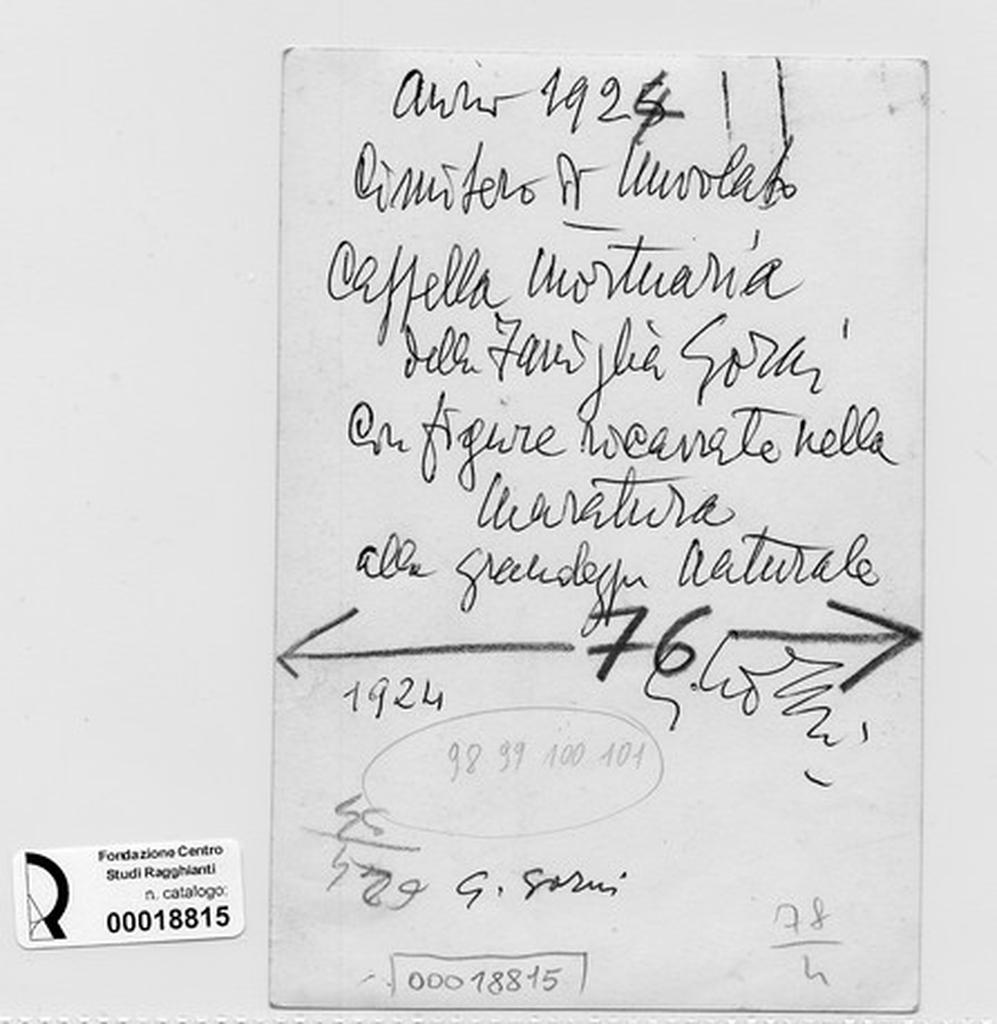 Anno 1924
Cimitero di Nuvolato
Cappella Mortuaria
della Famiglia Gorni
Con figure ricavate nella
Muratura
alla grandezza Naturale
76
G. Gorni
1924
98 99 100 101
G. Gorni
78
4
00018815
Fondazione Centro
Studi Ragghianti
n. catalogo:
00018815